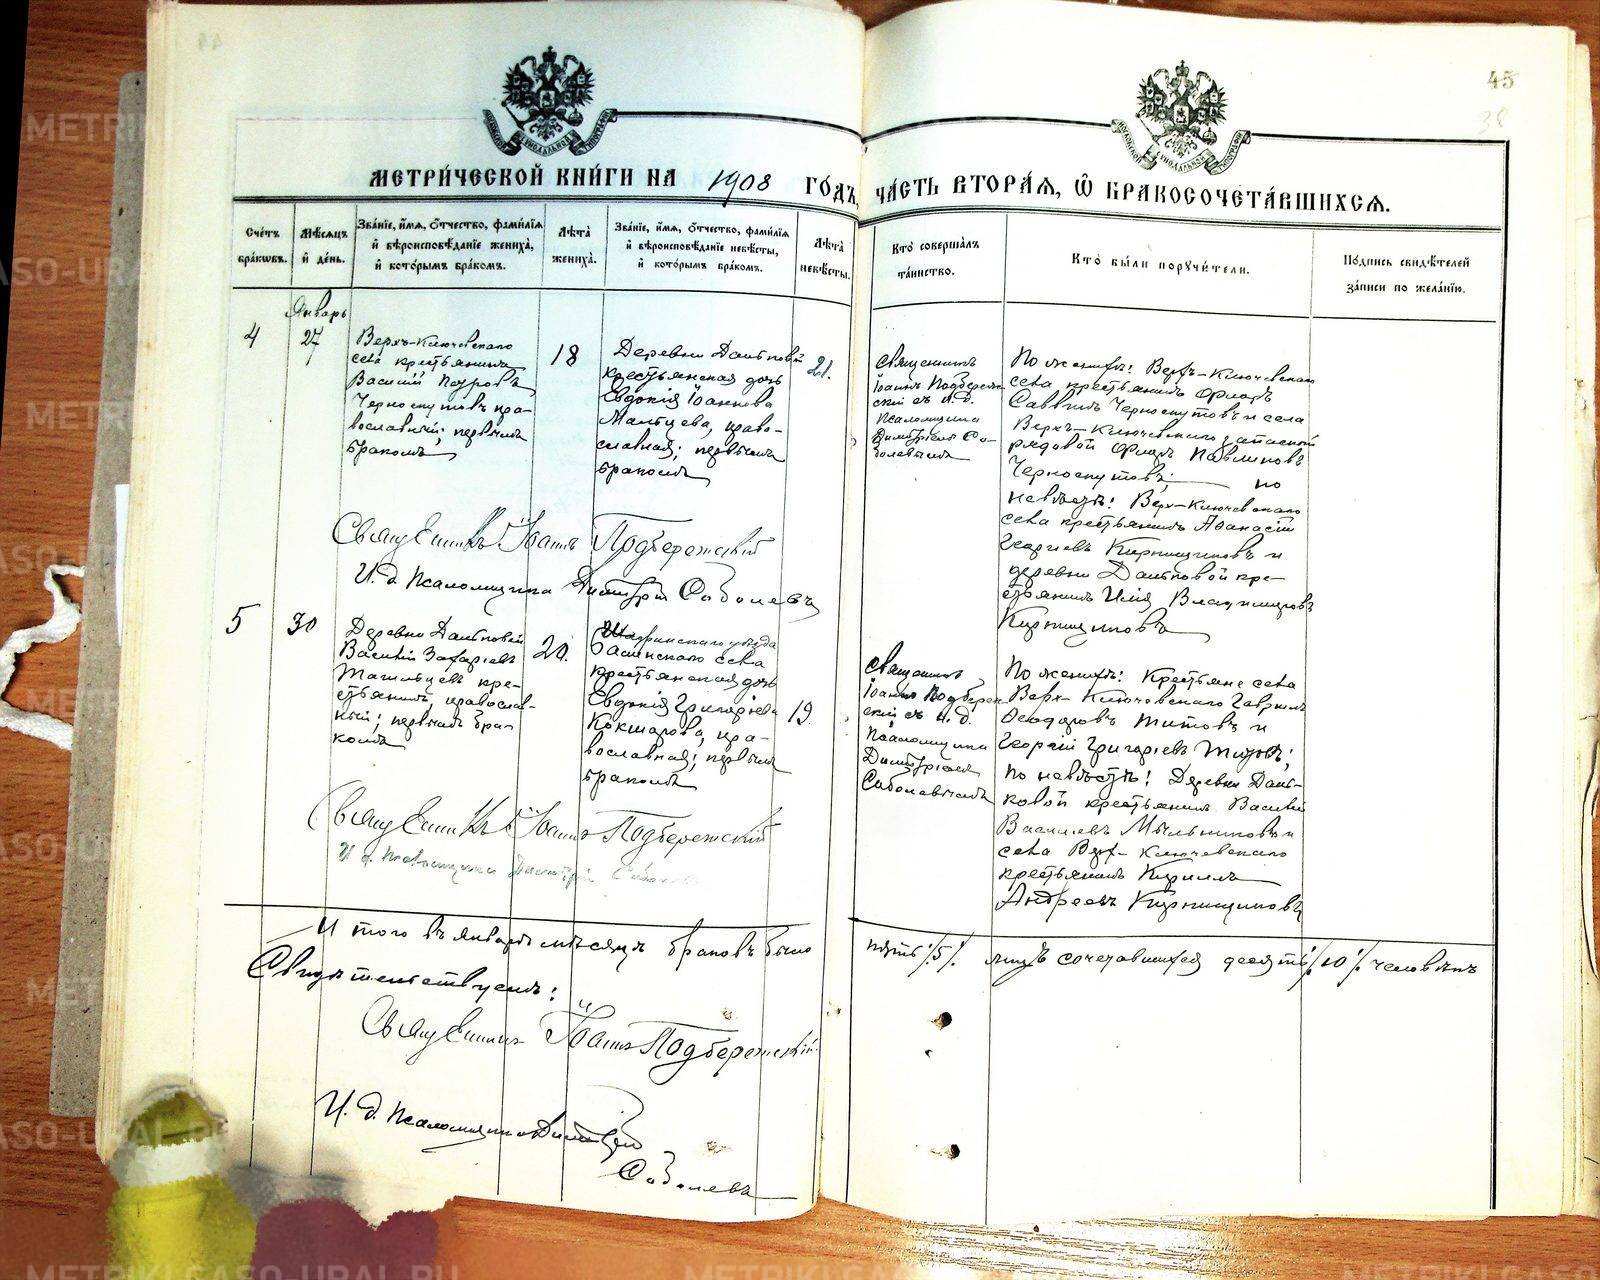 45
38
МЕТРИ́ЧЕСКОЙ КНИ́ГИ НА 1908 ГО́ДЪ, ЧА́СТЬ ВТОРА́Я, Ѡ БРАКОСОЧЕТА́ВШИХСЯ.
Сче́тъ бра́кѡвъ.
Мѣ́сяцъ и де́нь.
Зва́нїе, и́мя, ѻ́тчество, фами́лїя и вѣроисповѣ́данїе жениха̀, и кото́рымъ бра́комъ.
Лѣта̀ жениха̀.
Зва́нїе, и́мя, ѻ́тчество, фами́лїя и вѣроисповѣ́данїе невѣ́сты, и кото́рымъ бра́комъ.
Лѣта̀ невѣ́сты.
Кто̀ соверша́лъ та́инство.
Кто̀ бы́ли порꙋчи́тели.
По́дпись свидѣ́телей за́писи по жела́нїю.
Январь
4
27
Верхъ-Ключевскаго
села крестьянинъ
Василій Петровъ
Черноскутовъ, пра-
вославный; первымъ
бракомъ
18
Деревни Далматовой
крестьянская дочь
Евдокія Іоаннова
Мальцева, право-
славная; первымъ
бракомъ
21.
Священникъ
Іоаннъ Подбереж-
скій съ И. д.
Псаломщика
Димитріемъ Со-
болевымъ
По женихѣ: Верхъ-Ключевскаго
села крестьянинъ Флоръ
Саввинъ Черноскутовъ и села
Верхъ-Ключевскаго запасной
рядовой Флоръ Павлиновъ
Черноскутовъ; по
невѣстѣ: Верх-Ключевскаго
села крестьянинъ Аѳанасій
Георгіевъ Кирпищиковъ и
деревни Далматовой кре-
стьянинъ Илія Владиміровъ
Кирпищиковъ
Священникъ Іоаннъ Подбережскій
И. д. Псаломщика Димитрій Соболевъ
5
30
Деревни
Василій Захаріевъ
кре-
стьянинъ, православ-
ный; первымъ бра-
комъ
20.
уѣзда
села
крестьянская дочь
Евдокія Григоріева
Кокшарова, пра-
вославная; первымъ
бракомъ
19.
Священникъ
Іоаннъ Подбереж-
скій съ И. д.
Псаломщика
Димитріемъ
Соболевымъ
По женихѣ: Крестьяне села
Верх-Ключевскаго Гавріилъ
Ѳеодоровъ Титовъ и
Георгій Григоріевъ Титовъ;
По невѣстѣ: Деревни
крестьянинъ Василій
Василіевъ Мыльниковъ и
села Верх-Ключевскаго
крестьянинъ Кириллъ
Андреевъ Кирпищиковъ
Священникъ Іоаннъ Подбережскій
И д. Псаломщика Димитрій Соболевъ
Итого въ январѣ мѣсяцѣ браковъ было пять /5/ лицъ сочетавшихся десять /10/ человѣкъ
Свидѣтельствуемъ:
Священникъ Іоаннъ Подбережскій.
И. д. Псаломщика Димитрій
Соболевъ
METRIKI.GASO-URAL.RU